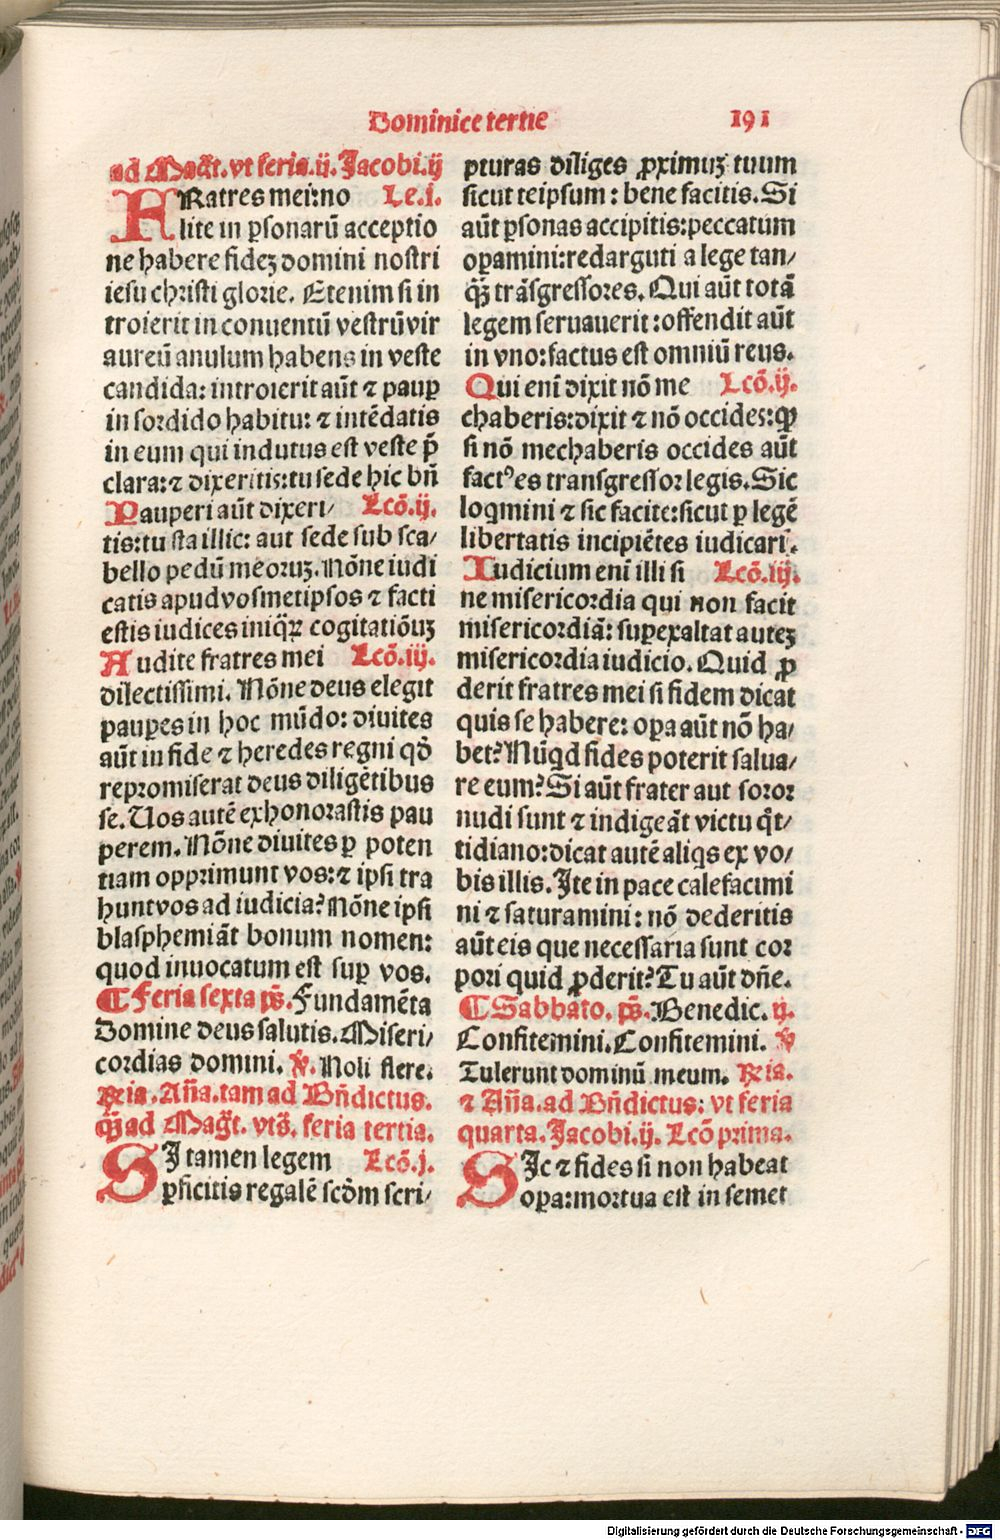 Dominice tertie 191
ad Mag̃t. vt feria.ij. Jacobi.ij
FRatres mei:no Le.j.
lite in ꝑsonarū acceptio
ne habere fideꝫ domini nostri
iesu christi glorie. Etenim si in
troierit in conuentū vestrū vir
aureū anulum habens in veste
candida: introierit aūt ⁊ pauꝑ
in sordido habitu: ⁊ intēdatis
in eum qui indutus est veste p̄
clara:⁊ dixeritis:tu sede hic bn̄
Pauperi aūt dixeri/ Lcō.ij.
tis:tu sta illic: aut sede sub sca/
bello pedū meoruꝫ. Nōne iudi
catis apud vosmetipsos ⁊ facti
estis iudices iniq̄ꝝ cogitatiōuꝫ
Audite fratres mei Lcō.iij.
dilectissimi. Nōne deus elegit
pauꝑes in hoc mūdo: diuites
aūt in fide ⁊ heredes regni qđ
repromiserat deus diligētibus
se. Uos autē exhonorastis pau
perem. Nōne diuites ꝑ poten
tiam opprimunt vos:⁊ ipsi tra
hunt vos ad iudicia? Nōne ipsi
blasphemiāt bonum nomen:
quod inuocatum est suꝑ vos.
¶ Feria sexta pš. Fundamēta
Domine deus salutis. Miseri/
cordias domini. ℣. Noli flere.
℞ia. An̄a. tam ad Bn̄dictus.
q̄ȝ ad Mag̃t. vtš. feria tertia.
SI tamen legem Lcō.j.
ꝑficitis regalē scđm scri/
pturas diliges ꝓximuꝫ tuum
sicut teipsum: bene facitis. Si
aūt ꝑsonas accipitis:peccatum
oꝑamini:redarguti a lege tan/
q̄ȝ trāsgressores. Qui aūt totā
legem seruauerit:offendit aūt
in vno:factus est omniū reus.
Qui enī dixit nō me Lcō.ij.
chaberis:dixit ⁊ nō occides:ꝙ
si nō mechaberis occides aūt
factꝰ es transgressor legis. Sic
loqmini ⁊ sic facite:sicut ꝑ legē
libertatis incipiētes iudicari.
Iudicium enī illi si Lcō.iij.
ne misericordia qui non facit
misericordiā: suꝑexaltat auteꝫ
misericordia iudicio. Quid ꝓ
derit fratres mei si fidem dicat
quis se habere: oꝑa aūt nō ha/
bet? Nūqd fides poterit salua/
re eum? Si aūt frater aut soror
nudi sunt ⁊ indigeāt victu q̊t/
tidiano:dicat autē aliqs ex vo/
bis illis. Ite in pace calefacimi
ni ⁊ saturamini: nō dederitis
aūt eis que necessaria sunt cor
pori quid ꝓderit? Tu aūt dn̄e.
¶ Sabbato. pš. Benedic. ij.
Confitemini. Confitemini. ℣
Tulerunt dominū meum. ℞ia.
⁊ An̄a. ad Bn̄dictus: vt feria
quarta. Jacobi.ij. Lcō prima.
SIc ⁊ fides si non habeat
oꝑa:mortua est in semet
Digitalisierung gefördert durch die Deutsche Forschungsgemeinschaft - DFG